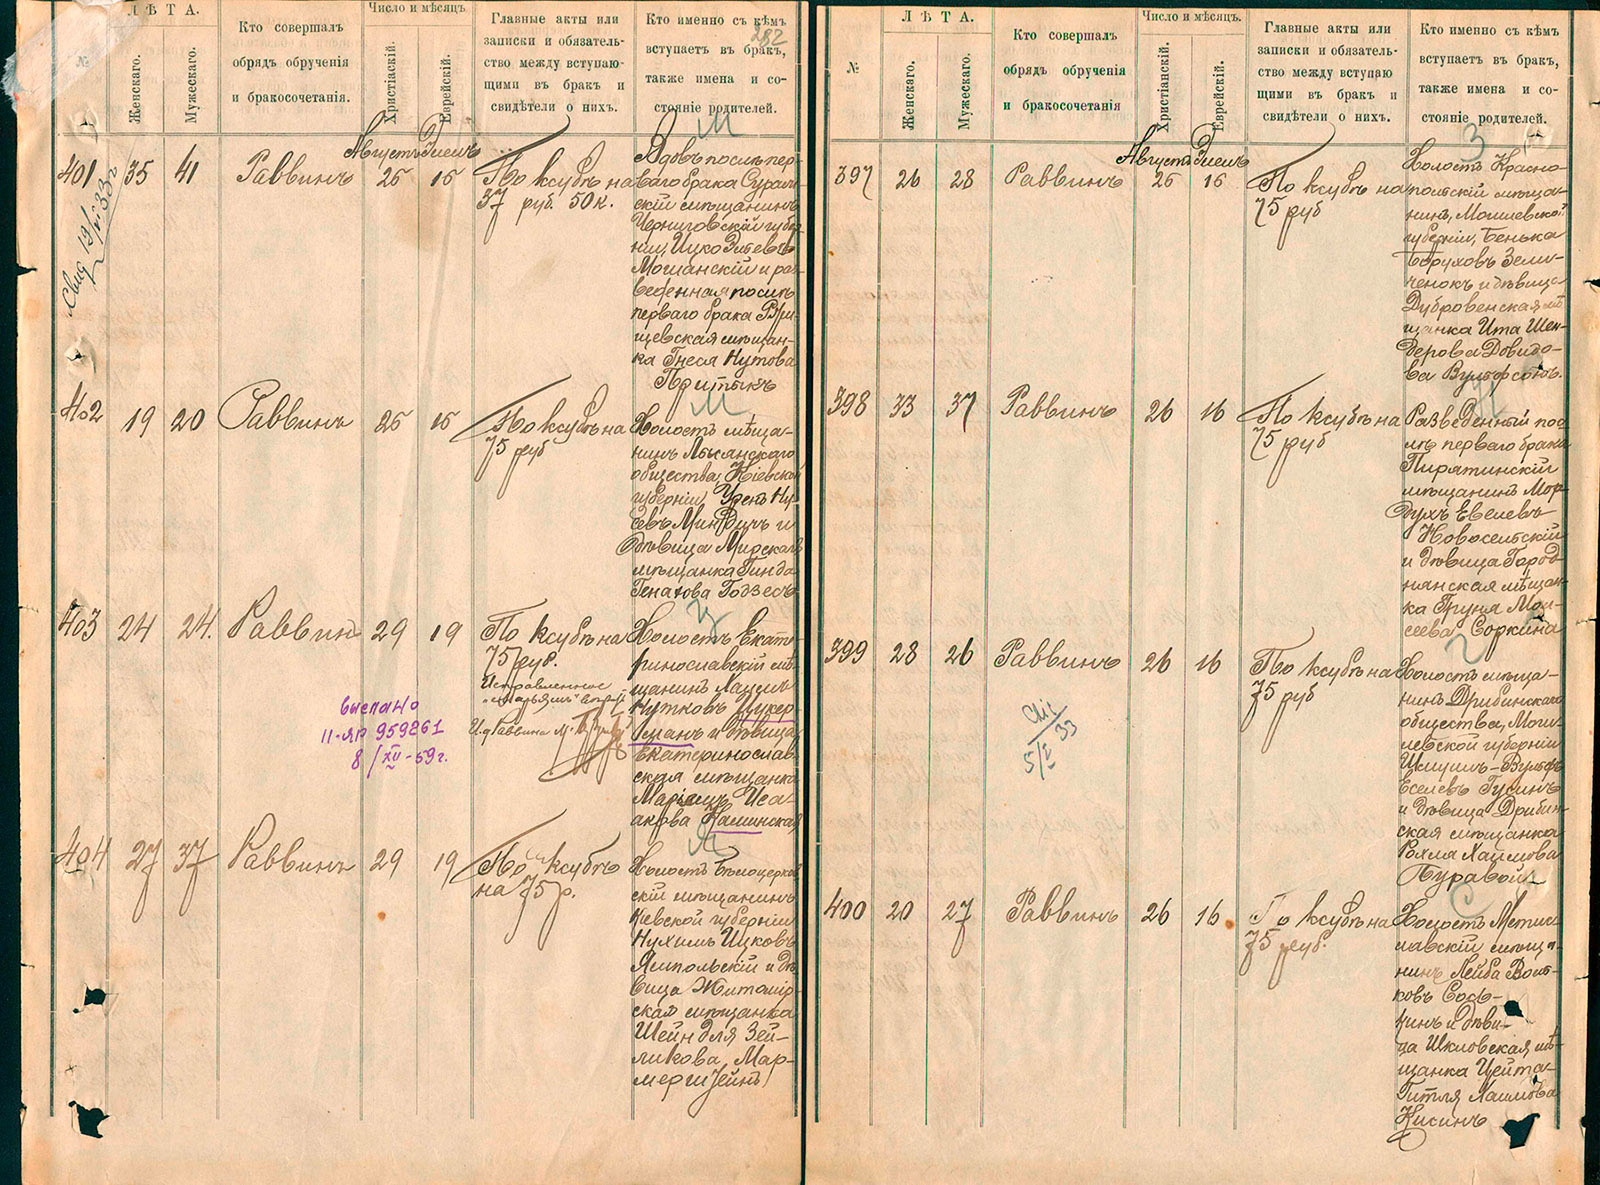 Л Ѣ Т А.
№
Женскаго.
Мужескаго.
Кто совершалъ
обрядъ обрученія
и бракосочетанія.
Число и мѣсяцъ
Христіаскій.
Еврейскій.
Главные акты или
записки и обязатель-
ство между вступаю-
щими въ бракъ и
свидѣтели о нихъ.
Кто именно съ кѣмъ
вступаетъ въ бракъ,
также имена и со-
стояніе родителей.
282
Августъ Элелъ
401 35 41 Раввинъ 25 15
По ксубѣ на
37 руб. 50 к.
М
Вдовъ послѣ пер-
ваго брака Сураж-
скій мѣщанинъ
Черниговской губер-
ніи, Ицко
Мошанскій и раз-
веденная послѣ
перваго брака
щанка Гнеся Нутова
402 19 20 Раввинъ 25 15
По ксубѣ на
75 руб
М
Холостъ мѣща-
нинъ Лысянскаго
общества, Кіевской
губерніи,
и
дѣвица Мирская
мѣщанка Гинда
403 24 24. Раввинъ 29 19
По ксубѣ на
75 руб.
Исправленное
И.д. Раввина
Холостъ Екате-
ринославскій мѣ-
щанинъ Хацкель
Нутковъ Цукер-
манъ и дѣвица
Екатеринослав-
ская мѣщанка
Маріясъ Иса-
акова Каминская
выслано
II-ЯР 959261
8/XII-59г.
404 27 37 Раввинъ 29 19
По ксубѣ
на 75 р.
Холостъ Бѣлоцерков-
скій мѣщанинъ
Кіевской губерніи
Нухимъ Ицковъ
Ямпольскій и дѣ-
вица Житомір-
ская мѣщанка
Шейндля Зей-
ликова Мар-
мерштейнъ
Л Ѣ Т А.
№
Женскаго.
Мужескаго.
Кто совершалъ
обрядъ обрученія
и бракосочетанія
Число и мѣсяцъ.
Христіанскій.
Еврейскій.
Главные акты или
записки и обязатель-
ство между вступаю
щими въ бракъ и
свидѣтели о нихъ.
Кто именно съ кѣмъ
вступаетъ въ бракъ,
также имена и со-
стояніе родителей.
Августъ Элелъ
397 26 28 Раввинъ 25 15
По ксубѣ на
75 руб
З
Холостъ Красно-
польскій мѣща-
нинъ, Могилевской
губерніи, Бенька
Боруховъ Зели-
ченокъ и дѣвица
Дубровенская мѣ-
щанка Ита Шен-
дерова Довидо-
ва Вульфсонъ.
398 33 37 Раввинъ 26 16
По ксубѣ на
75 руб
Разведенный пос-
лѣ перваго брака
Пирятинскій
мѣщанинъ Мор-
духъ Евелевъ
Новосельскій
и дѣвица Город-
нянская мѣщан-
ка Груня Мои-
сеева Соркина
399 28 26 Раввинъ 26 16
По ксубѣ на
75 руб
5/I 33
Г
Холостъ мѣща-
нинъ Дрибинскаго
общества, Моги-
левской губерніи
Шмуилъ-Вульфъ
Еселевъ Гусинъ
и дѣвица Дрибин-
ская мѣщанка
Рохля Хаимова
Буравой
400 20 27 Раввинъ 26 16
По ксубѣ на
75 руб.
С
Холостъ Мстис-
лавскій мѣща-
нинъ Лейба
ковъ Сось-
кинъ и дѣви-
ца Шкловская мѣ-
щанка Цейта-
Гитля Хаимова
Кисинъ